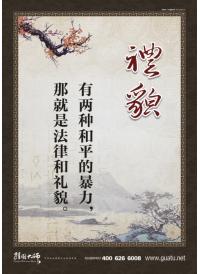 禮貌
有两种和平的暴力，
那就是法律和礼貌。
挂图大师
400 626 6008
www.guatu.net